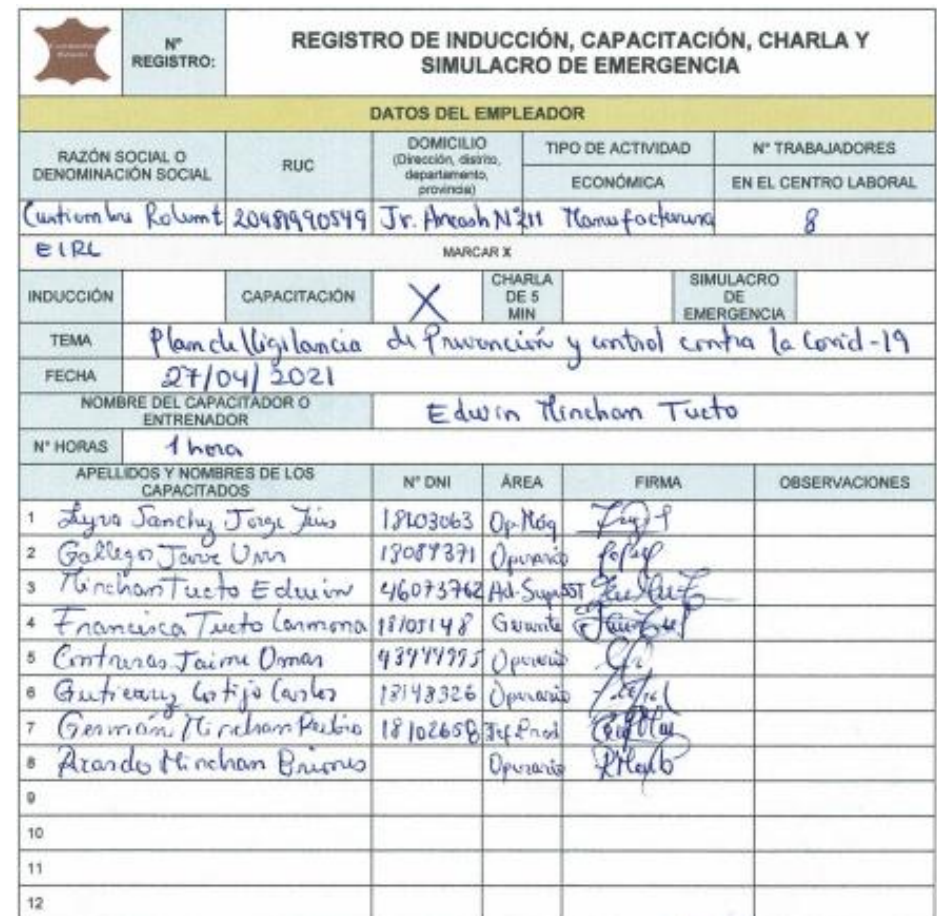 N° REGISTRO:
REGISTRO DE INDUCCIÓN, CAPACITACIÓN, CHARLA Y
SIMULACRO DE EMERGENCIA
DATOS DEL EMPLEADOR
RAZÓN SOCIAL O DENOMINACIÓN SOCIAL RUC DOMICILIO (Dirección, distrito, departamento, provincia) TIPO DE ACTIVIDAD ECONÓMICA N° TRABAJADORES EN EL CENTRO LABORAL
20481990549 Jr. Ancash N° 211 Manufacturera 8
EIRL
MARCAR X
INDUCCIÓN CAPACITACIÓN X CHARLA DE 5 MIN SIMULACRO DE EMERGENCIA
TEMA Plan de Vigilancia de Prevención y control contra la Covid-19
FECHA 27/04/2021
NOMBRE DEL CAPACITADOR O ENTRENADOR Edwin Minchan Tucto
N° HORAS 1 hora
APELLIDOS Y NOMBRES DE LOS CAPACITADOS N° DNI ÁREA FIRMA OBSERVACIONES
1 Sanchez Jorge Luis Op. Maq
2 Operario
3 Minchan Tucto Edwin 46073762
4 Francisca Tucto Carmona Gerente
5 Contreras Jaime Omar Operario
6 Cortijo Carlos 18148326 Operario
7 Germán Minchan Rubio 18102658 Jef. Prod
8 Minchan Briones Operario
9
10
11
12